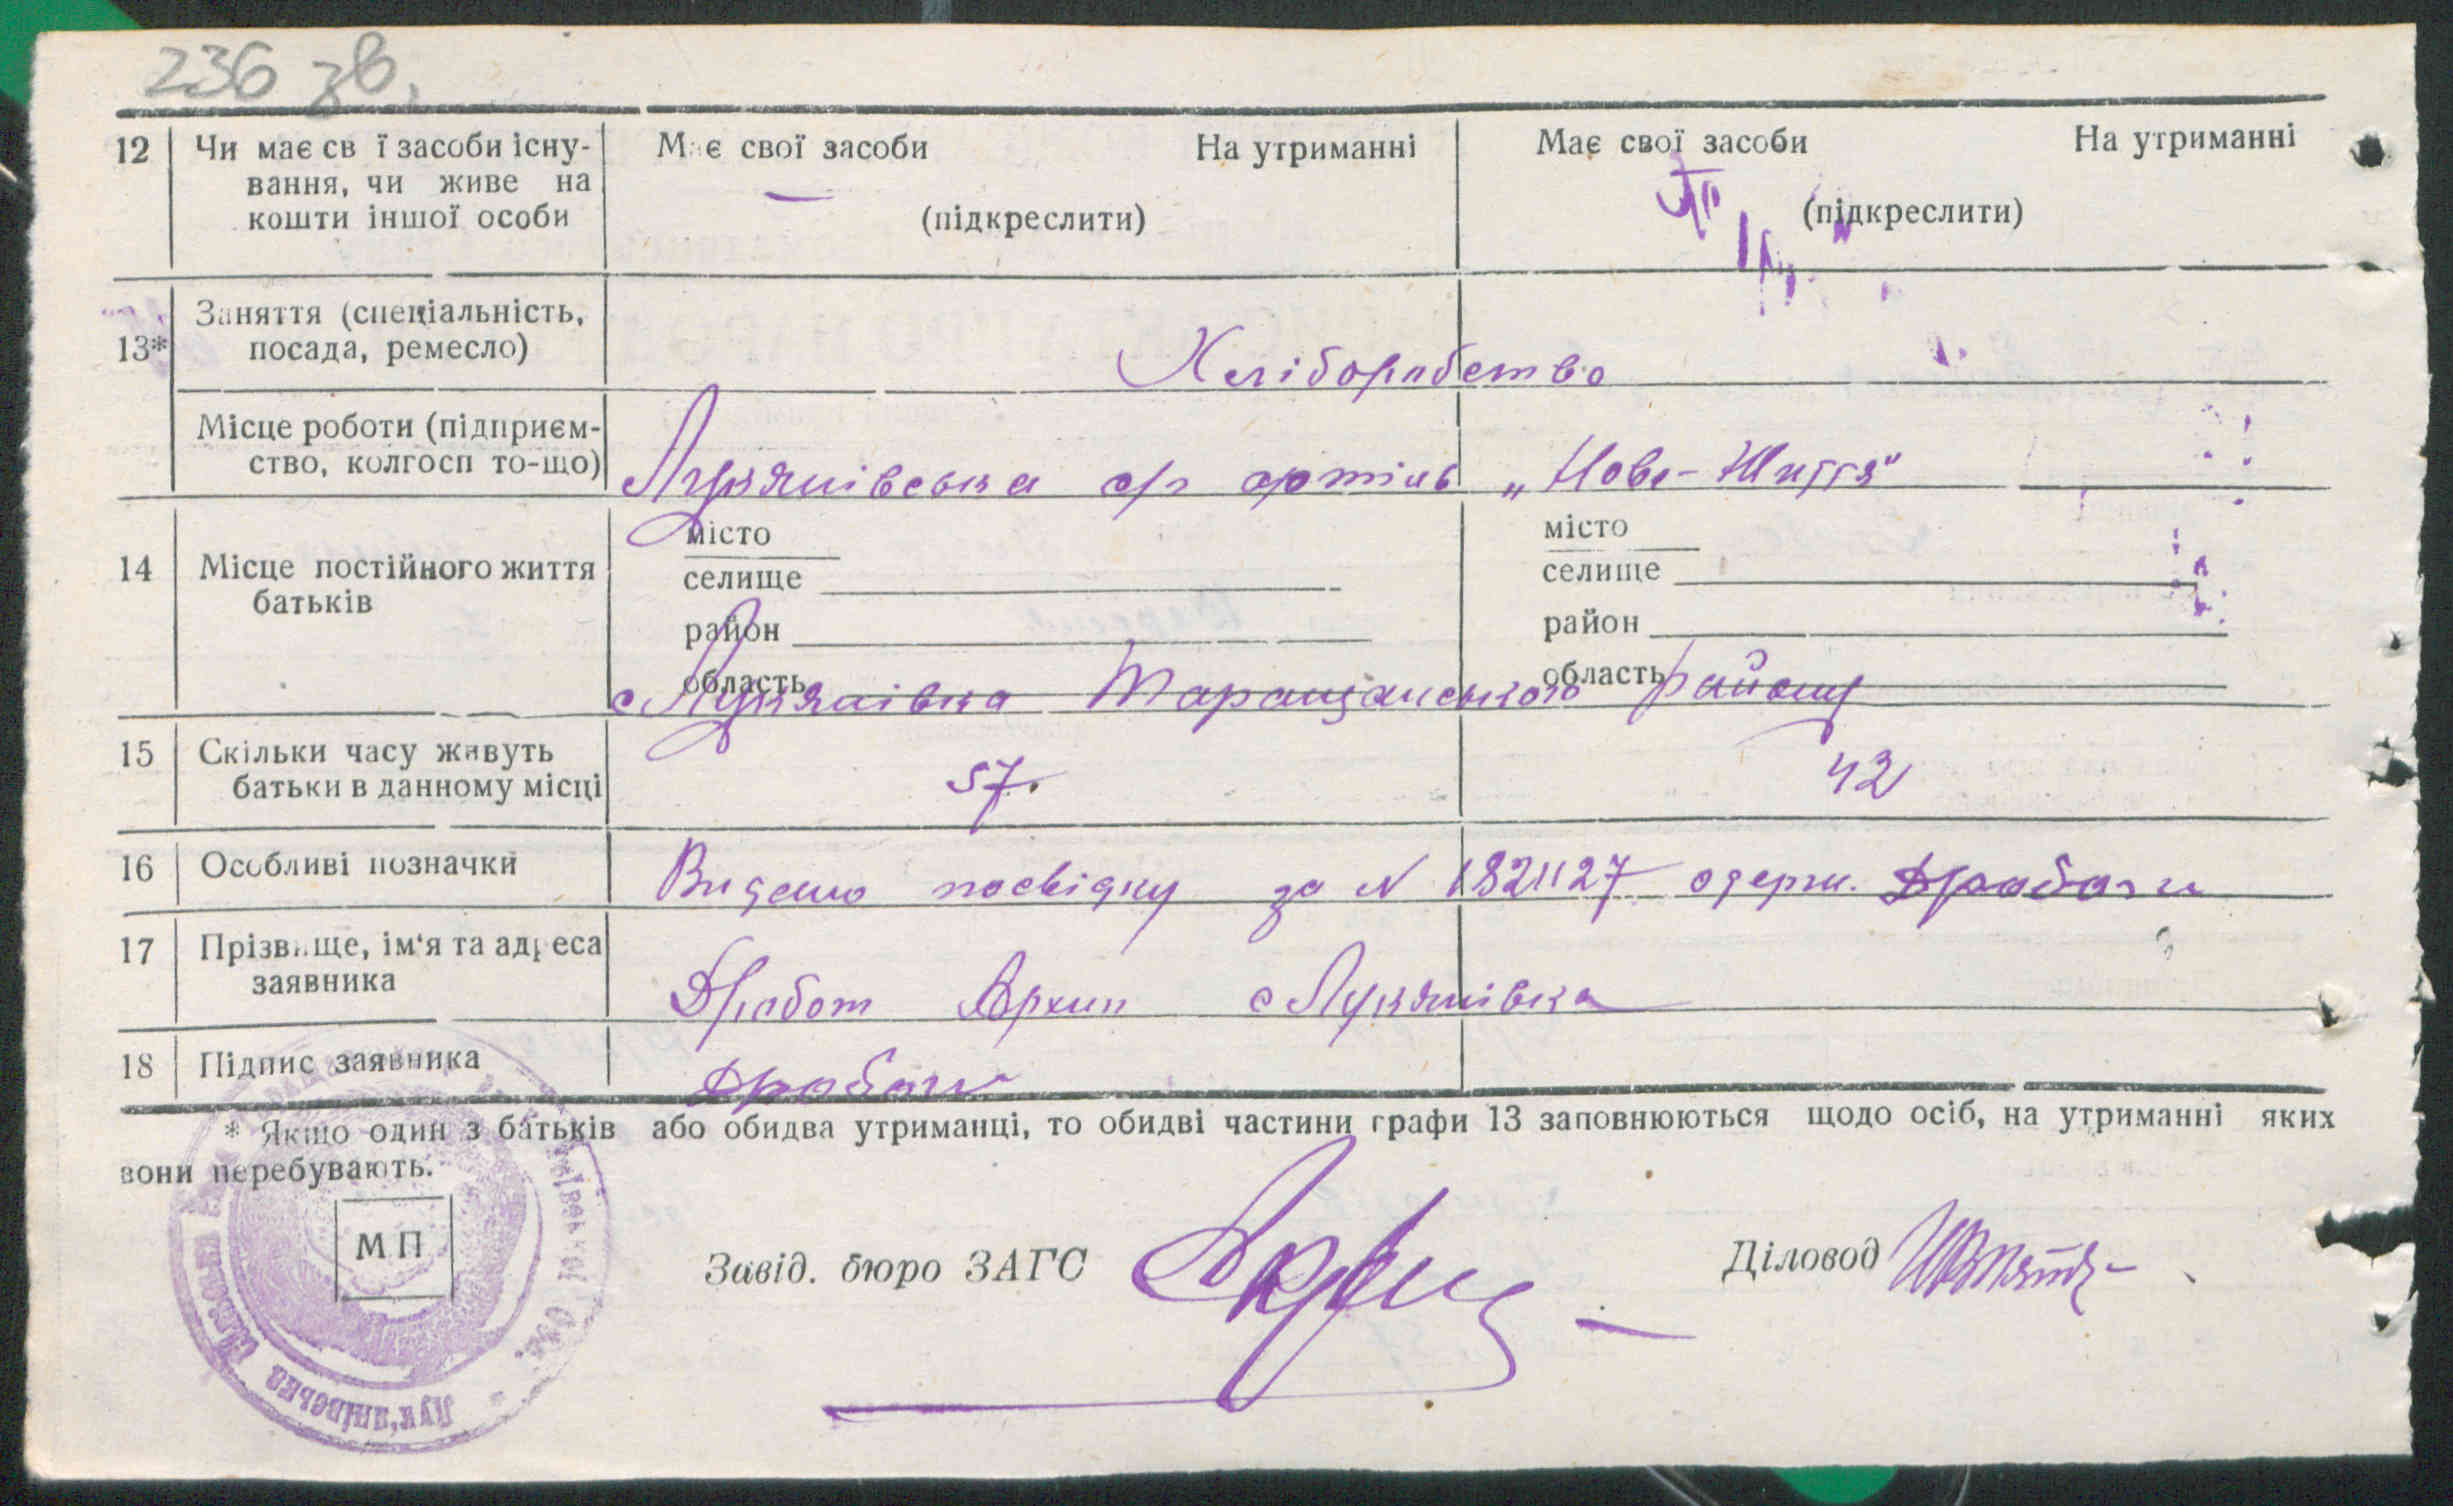 236 зв.
12 Чи має св ї засоби існу- Має свої засоби На утриманні Має свої засоби На утриманні
вання, чи живе на
кошти іншої особи (підкреслити) (підкреслити)
Заняття (спеціальність,
13* посада, ремесло) Хліборобство
Місце роботи (підприєм-
ство, колгосп то-що) Лукянівська с/г артіль „Нове-Життя"
місто місто
14 Місце постійного життя селище селище
батьків район район
область область
с Лукянівка Таращанського району
15 Скільки часу живуть
батьки в данному місці 57. 42
16 Особливі позначки Видано посвідку за N 1821127 одерж.
17 Прізвище, ім'я та адреса
заявника Дробот Архип с Лукянівка
18 Підпис заявника
* Якщо один з батьків або обидва утриманці, то обидві частини графи 13 заповнюються щодо осіб, на утриманні яких
вони перебувають.
МП
Завід. бюро ЗАГС Діловод
Лук'янівська Сільська